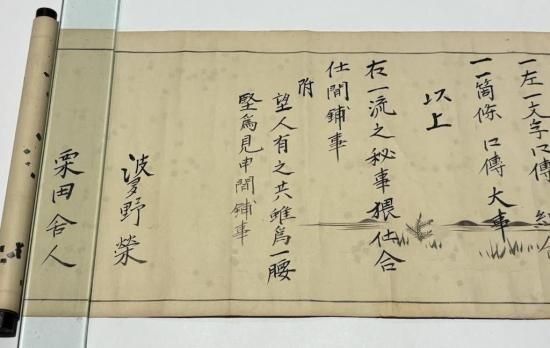 一左一文字口傳
一一箇條 口傳 大事
以上
右一流之秘事猥仕合
仕間鋪事
附
望人有之共雖爲一腰
堅爲見申間鋪事
波多野 榮
栗田舍人